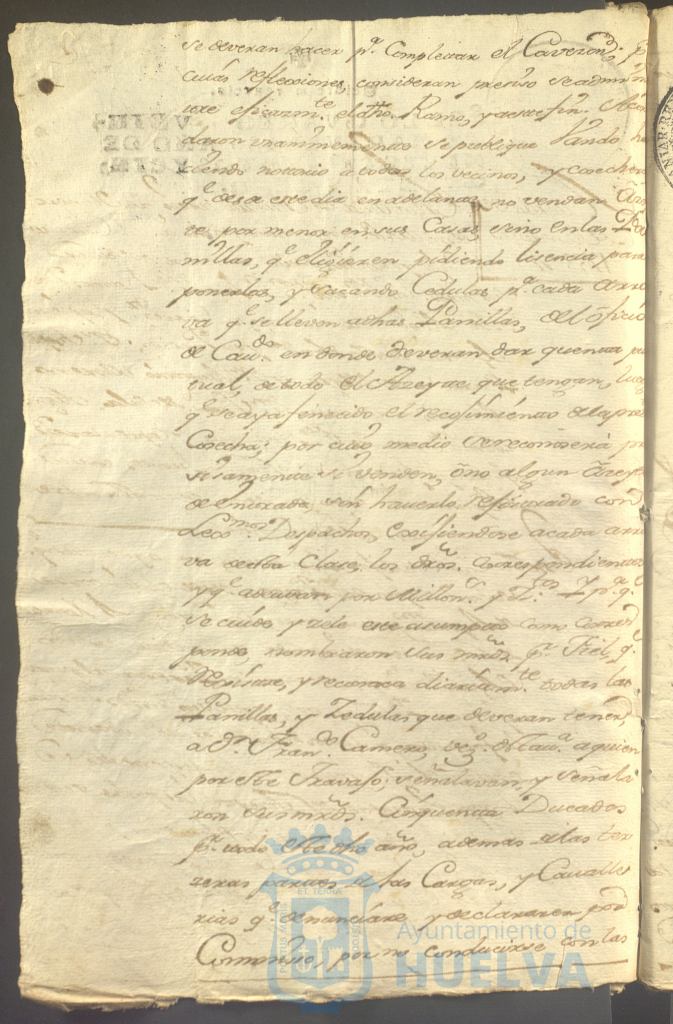 se deveran hacer pᵃ. Completar el Cavezon;
cuias reflecciones, consideran preciso se admi
tre eficazmᵗᵉ. el dho. Ramo, y a este fin Acor
daron unanimemente se publique Vando, ha
ciendo notorio a todos los vecinos, y cosecheros
qᵉ. desde este dia en adelante, no vendan Azei
te por menor en sus Casas, sino en las Pa
nillas, qᵉ. elijieren pidiendo lisencia para
ponerlas, y sacando Cedulas pᵃ. cada arro
va qᵉ. se lleven a dhas Panillas, del ofisio
de Cavᵈᵒ. en donde deveran dar quenta
tual, de todo el Azeyte que tengan, luego
qᵉ. se aya fenecido el recojimiento de la pres
Cosecha; por cuio medio se reconoserá
sisamente si venden, ó no algun Azeyte
de entrada, sin haverlo rejistrado con
Lexᵐᵒˢ. Despachos, exsijiendose a cada arro
va de esta Clase, los dros. correspondientes
y qᵉ. adeudan por Millonˢ. y
se cuide y zele este asumpto como corres
ponde, nombraron sus mrds. pʳ. Fiel qᵉ.
Visite, y reconosca diariamᵗᵉ. todas las
Panillas, y Zedulas que deveran tener,
a Dⁿ. Franᶜᵒ. Camero, vezº. de aquien
por este Travajo, señalavan, y señala
ron sus mrds. Cinquenta Ducados
pʳ. todo este dho año, ademas de las ter
zeras partes de las Cargas, y Cavalle
rias qᵉ. denunciare, y declararen por
Comiso, por no conducirse con las
ET TERRÆ
Ayuntamiento de
HUELVA